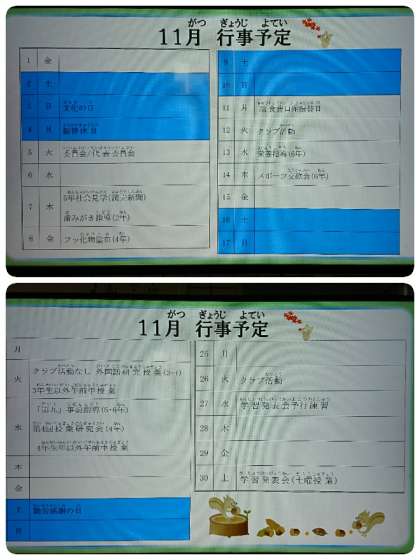 がつ ぎょうじ よてい
11月 行事予定
1 金
2 土
3 日 文化の日
4 月 振替休日
5 火 委員会/代表委員会
6 水
7 木 5年社会見学(読売新聞)
歯みがき指導(2年)
8 金 フッ化物塗布(4年)
9 土
10 日
11 月
12 火 クラブ活動
13 水 栄養指導(6年)
14 木 スポーツ交歓会(6年)
15 金
16 土
17 日
がつ ぎょうじ よてい
11月 行事予定
月
火 クラブ活動なし 外国語研究授業
3年生以外午前中授業
水
4年生以外午前中授業
木
金
土 勤労感謝の日
25 月
26 火 クラブ活動
27 水 学習発表会予行練習
28 木
29 金
30 土 学習発表会(土曜授業)